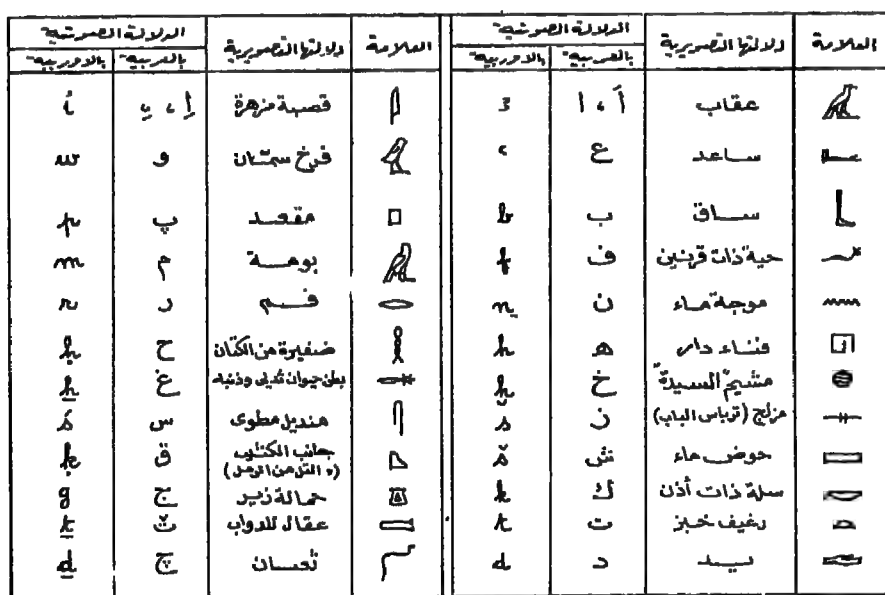 العلامة دلالتها التصويرية الدلالة الصوتية
بالعربية بالاوربية
عقاب أ ، ا ꜣ
ساعد ع ꜥ
ساق ب b
حية ذات قرنين ف f
موجة ماء ن n
فناء دار ه h
مشيم السيدة خ ḫ
مزلج (ترباس الباب) ز s
حوض ماء ش š
سلة ذات أذن ك k
رغيف خبز ت t
يد د d
العلامة دلالتها التصويرية الدلالة الصوتية
بالعربية بالاوربية
قصبة مزهرة إ ، ي i
فرخ سمّان و w
مقعد پ p
بومة م m
فم ر r
ضفيرة من الكتان ح ḥ
بطن حيوان ثديى وذنبه غ ẖ
منديل مطوى س ś
جانب الكثيب ق ḳ
(و التل من الرمل)
حمالة زير ج g
عقال للدواب ث ṯ
ثعبان چ ḏ